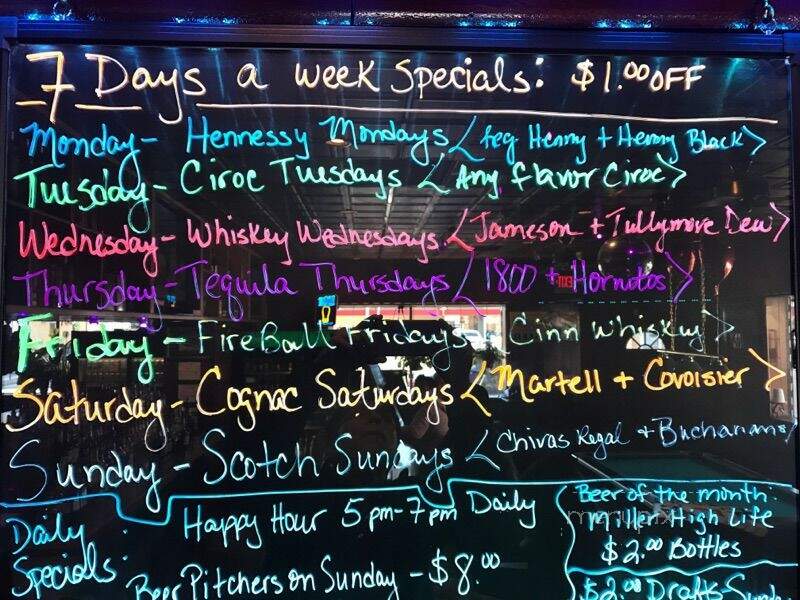 7 Days a week Specials: $1.00 OFF
Monday - Hennessy Mondays < reg Henny + Henny Black >
Tuesday - Ciroc Tuesdays < Any flavor Ciroc >
Wednesday - Whiskey Wednesdays < Jameson + Tullymore Dew >
Thursday - Tequila Thursdays < 1800 + Hornotos >
Friday - FireBall Fridays < Cinn Whiskey >
Saturday - Cognac Saturdays < Martell + Covoisier >
Sunday - Scotch Sundays < Chivas Regal + Buchanans >
Daily Specials:
Happy Hour 5pm-7pm Daily
Beer Pitchers on Sunday - $8.00
Beer of the month:
Miller High Life
$2.00 Bottles
$2.00 Drafts